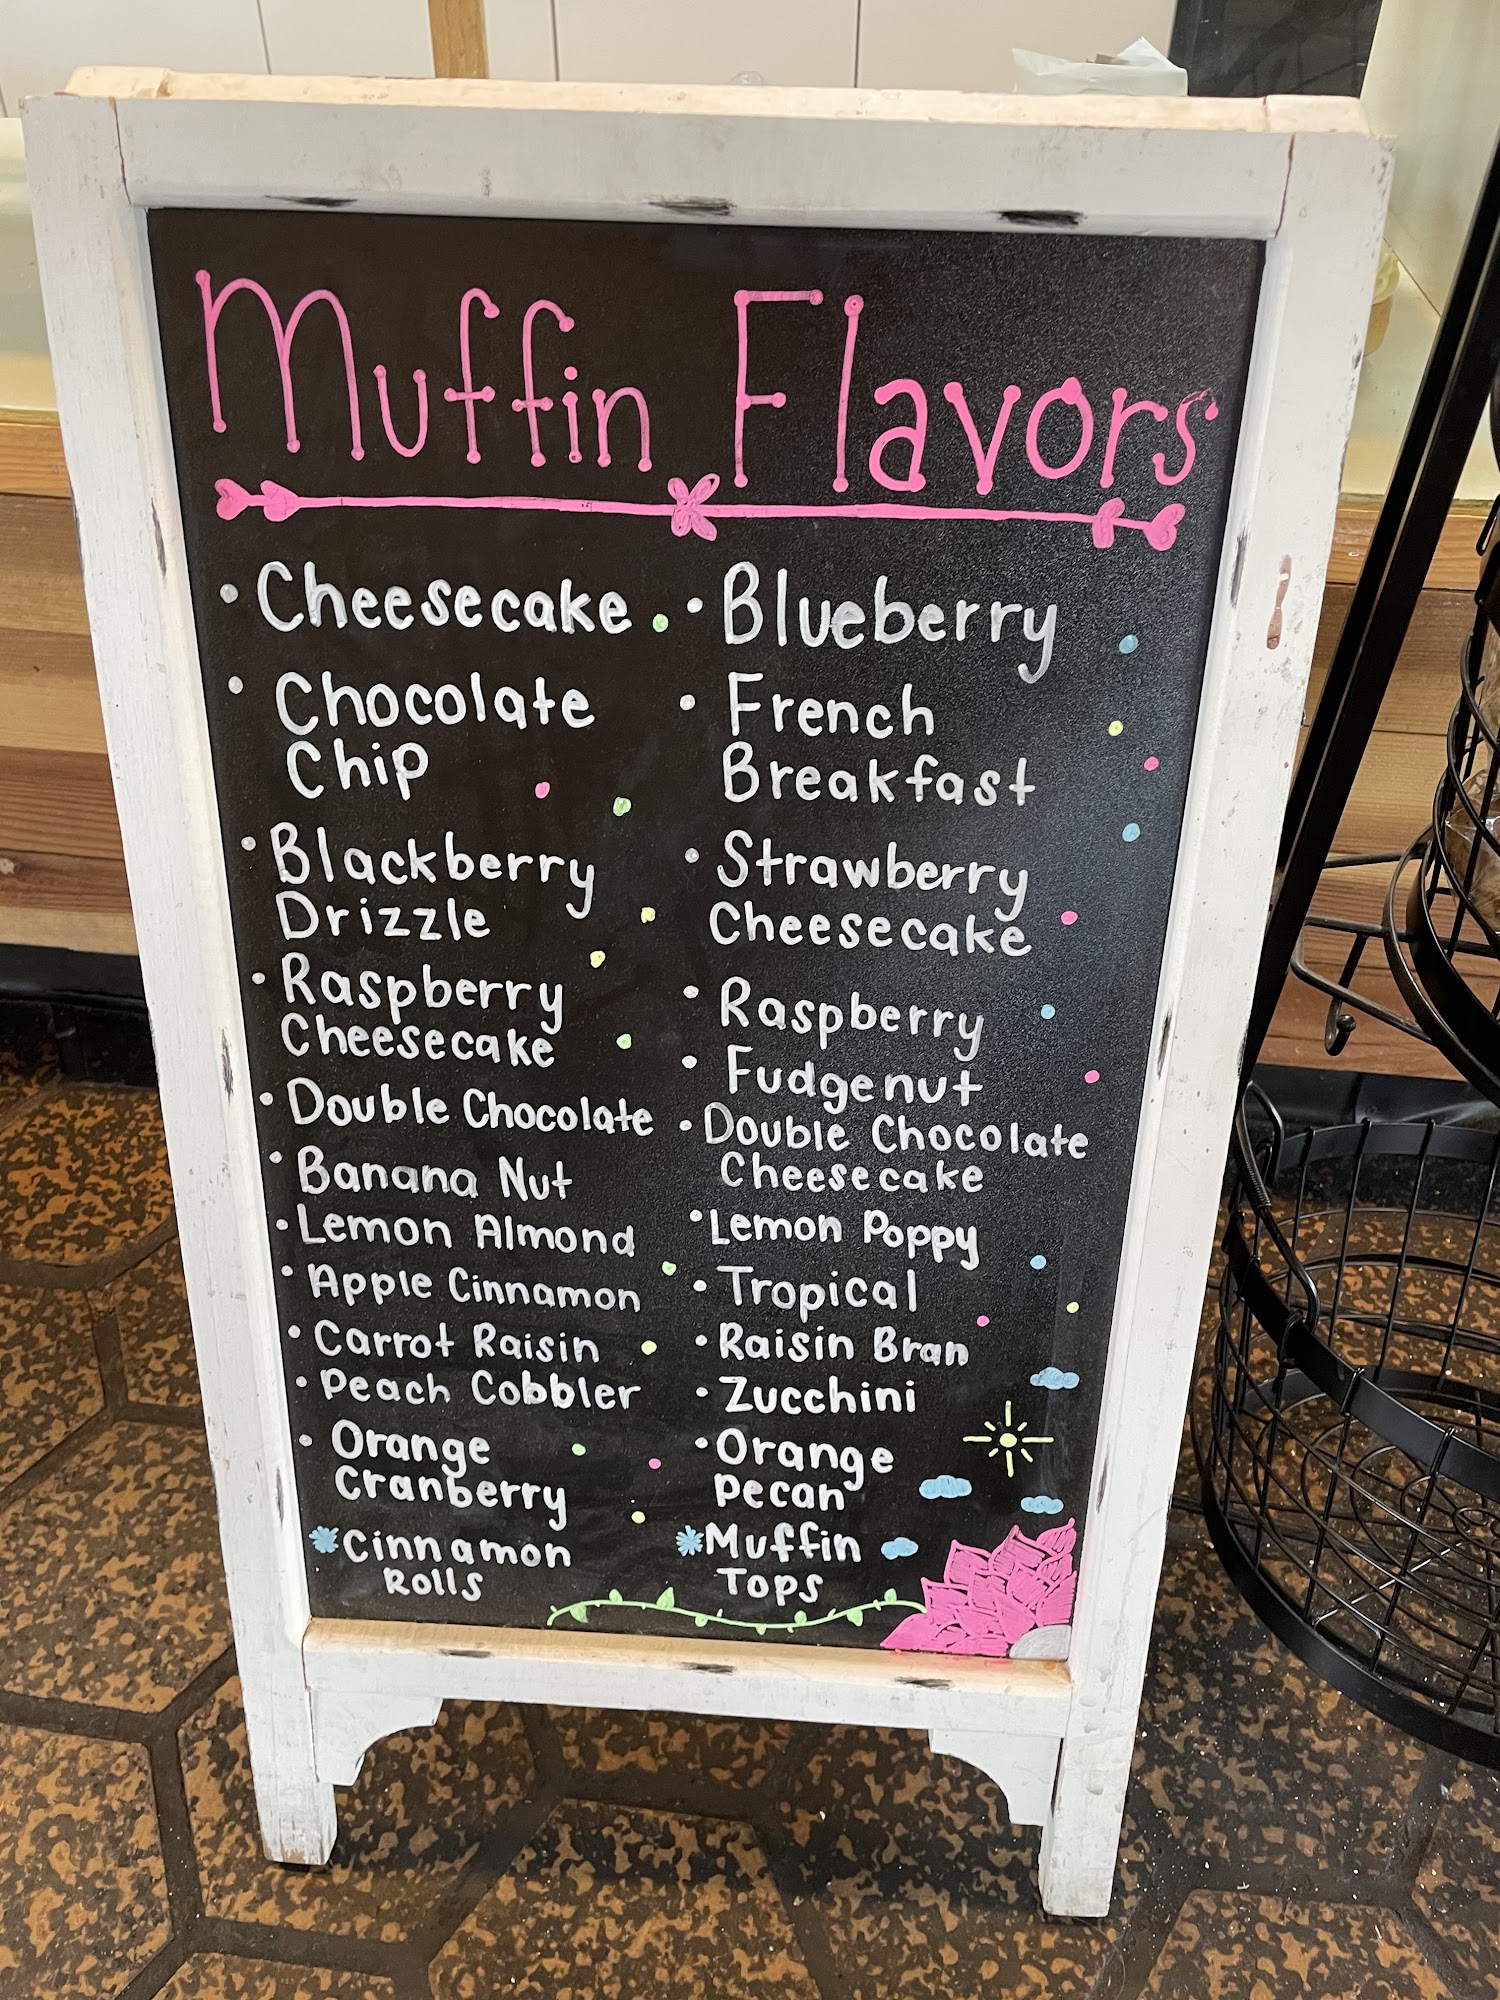 Muffin Flavors
• Cheesecake
• Chocolate
Chip
• Blackberry
Drizzle
• Raspberry
Cheesecake
• Double Chocolate
• Banana Nut
• Lemon Almond
• Apple Cinnamon
• Carrot Raisin
• Peach Cobbler
• Orange
Cranberry
* Cinnamon
Rolls
• Blueberry
• French
Breakfast
• Strawberry
Cheesecake
• Raspberry
• Fudgenut
• Double Chocolate
Cheesecake
• Lemon Poppy
• Tropical
• Raisin Bran
• Zucchini
• Orange
Pecan
* Muffin
Tops